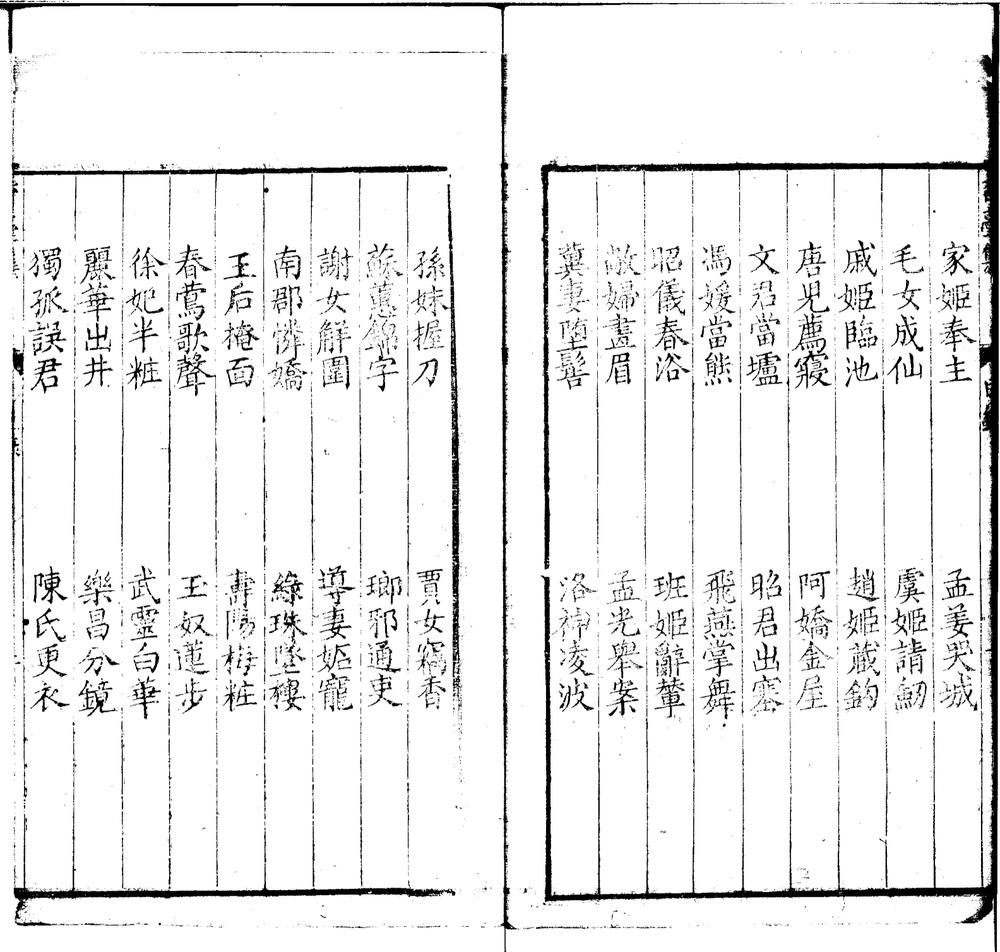 家姬奉主　孟姜哭城
毛女成仙　虞姬請劒
戚姬臨池　趙姬藏鈎
唐兒薦寢　阿嬌金屋
文君當壚　昭君出塞
馮媛當熊　飛燕掌舞
昭儀春浴　班姬辭輦
敞婦畫眉　孟光舉案
冀妻墮髻　洛神凌波
孫妹握刀　賈女竊香
蘇蕙錦字　瑯邪通吏
謝女解圍　導妻妬寵
南郡憐嬌　綠珠墜樓
王后掩面　壽陽梅粧
春鶯歌聲　玉奴蓮步
徐妃半粧　武靈白華
麗華出井　樂昌分鏡
獨孤誤君　陳氏更衣